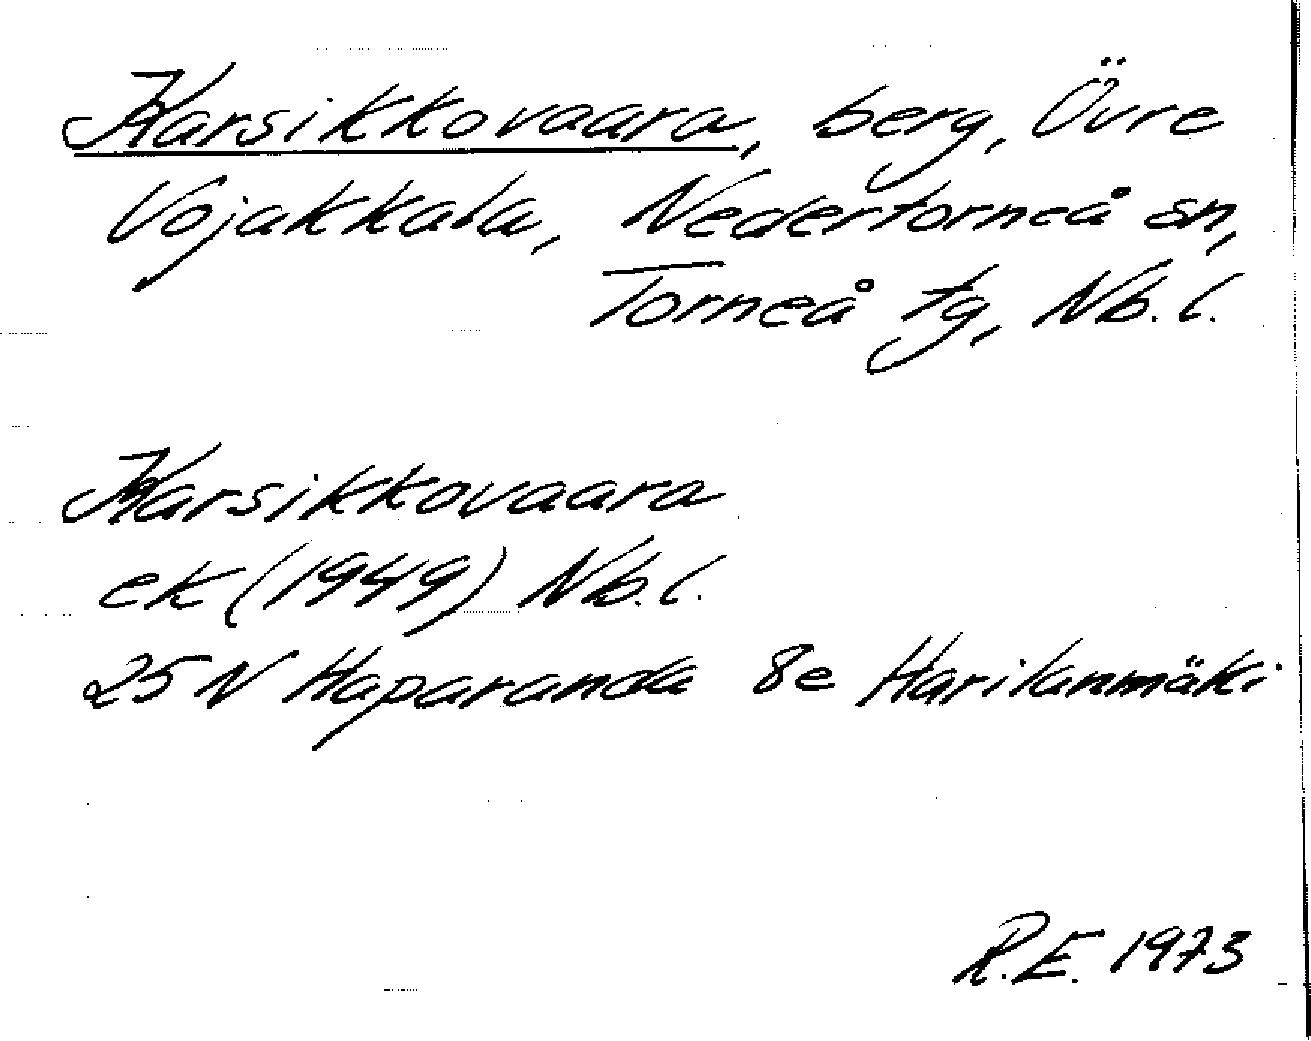 Karsikkovaara, berg, Övre
Vojakkala, Nedertorneå sn,
Torneå tg, Nb. l.
Karsikkovaara
ek (1949) Nb. l.
25 N Haparanda 8e Harilanmäki
R.E. 1973